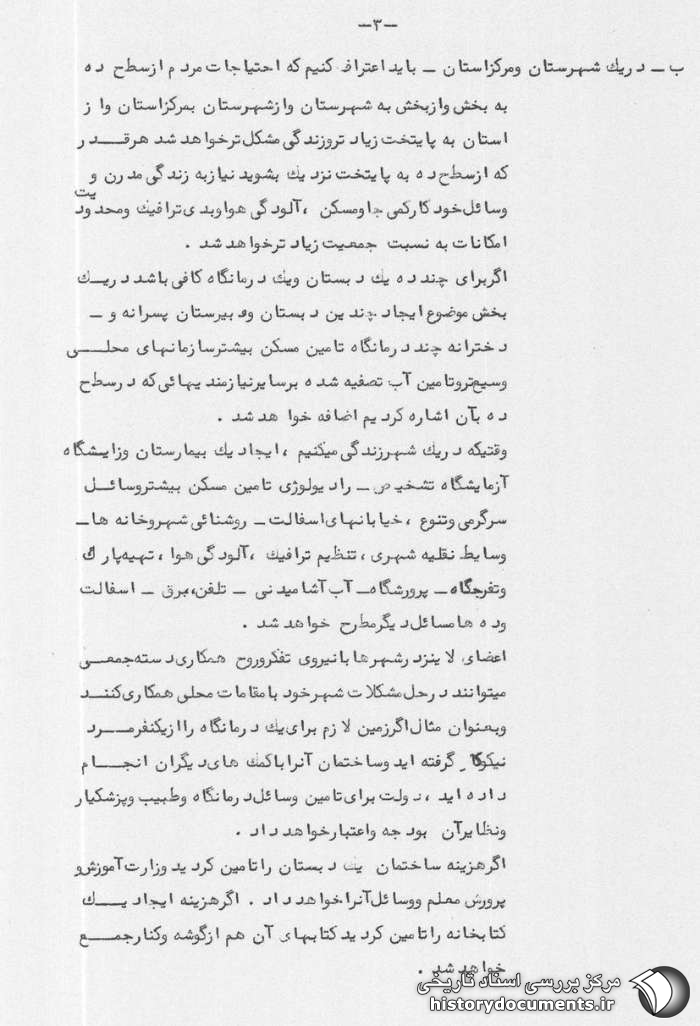 -۳-
ب - در یک شهرستان و مرکز استان - باید اعتراف کنیم که احتیاجات مردم از سطح ده
به بخش و از بخش به شهرستان و از شهرستان بمرکز استان و از
استان به پایتخت زیاد تر و زندگی مشکل تر خواهد شد هر قدر
که از سطح ده به پایتخت نزدیک بشوید نیاز به زندگی مدرن و
وسائل خودکار کمی جا و مسکن ، آلودگی هوا و بدی ترافیک و محدودیت
امکانات به نسبت جمعیت زیاد تر خواهد شد .
اگر برای چند ده یک دبستان و یک درمانگاه کافی باشد در یک
بخش موضوع ایجاد چندین دبستان و دبیرستان پسرانه و -
دخترانه چند درمانگاه تامین مسکن بیشتر سازمانهای محلی
وسیع تر و تامین آب تصفیه شده بر سایر نیازمندیهائی که در سطح
ده بآن اشاره کردیم اضافه خواهد شد .
وقتیکه در یک شهر زندگی میکنیم ، ایجاد یک بیمارستان و زایشگاه
آزمایشگاه تشخیص - رادیولوژی تامین مسکن بیشتر وسائل
سرگرمی و تنوع ، خیابانهای اسفالت - روشنائی شهر و خانه ها -
وسایط نقلیه شهری ، تنظیم ترافیک ، آلودگی هوا ، تهیه پارک
و تفرجگاه - پرورشگاه - آب آشامیدنی - تلفن ، برق - اسفالت
و ده ها مسائل دیگر مطرح خواهد شد .
اعضای لاینز در شهر ها با نیروی تفکر و روح همکاری دسته جمعی
میتوانند در حل مشکلات شهر خود با مقامات محلی همکاری کنند
و بعنوان مثال اگر زمین لازم برای یک درمانگاه را از یکنفر مرد
نیکوکار گرفته اید و ساختمان آنرا با کمک های دیگران انجام
داده اید ، دولت برای تامین وسائل درمانگاه و طبیب و پزشکیار
و نظایر آن بودجه و اعتبار خواهد داد .
اگر هزینه ساختمان یک دبستان را تامین کردید وزارت آموزش و
پرورش معلم و وسائل آنرا خواهد داد . اگر هزینه ایجاد یک
کتابخانه را تامین کردید کتابهای آن هم از گوشه و کنار جمع
خواهد شد .
مرکز بررسی اسناد تاریخی
historydocuments.ir